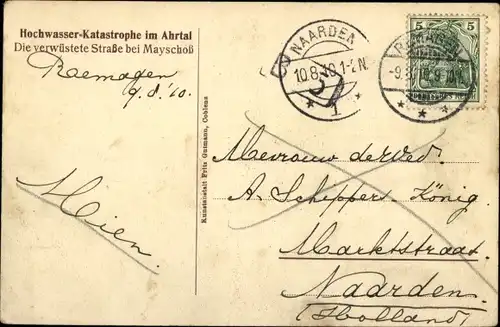 Hochwasser-Katastrophe im Ahrtal
Die verwüstete Straße bei Mayschoß
Raemagen
9.8.'10.
Mien.
Kunstanstalt Fritz Gutmann, Coblenz
NAARDEN
10.8.10 1-2N
1
5
5
Mevrouw de Wed.
A. Schipper König.
Marktstraat
Naarden.
(Holland)